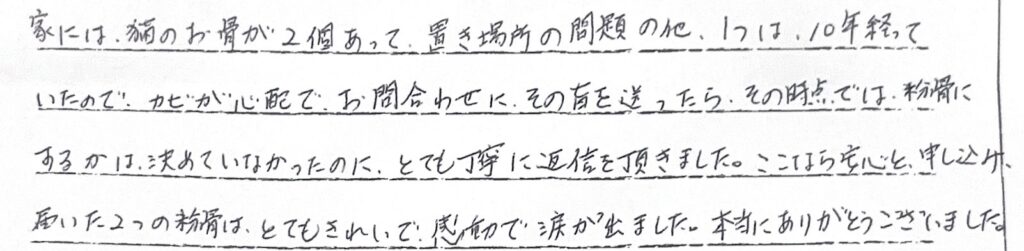 家には、猫のお骨が2個あって、置き場所の問題の他、1つは、10年経って
いたので、カビが心配で、お問合わせに、その旨を送ったら、その時点では、粉骨に
するかは、決めていなかったのに、とても丁寧に返信を頂きました。ここなら安心と、申し込み、
届いた2つの粉骨は、とてもきれいで、感動で涙が出ました。本当にありがとうございました。